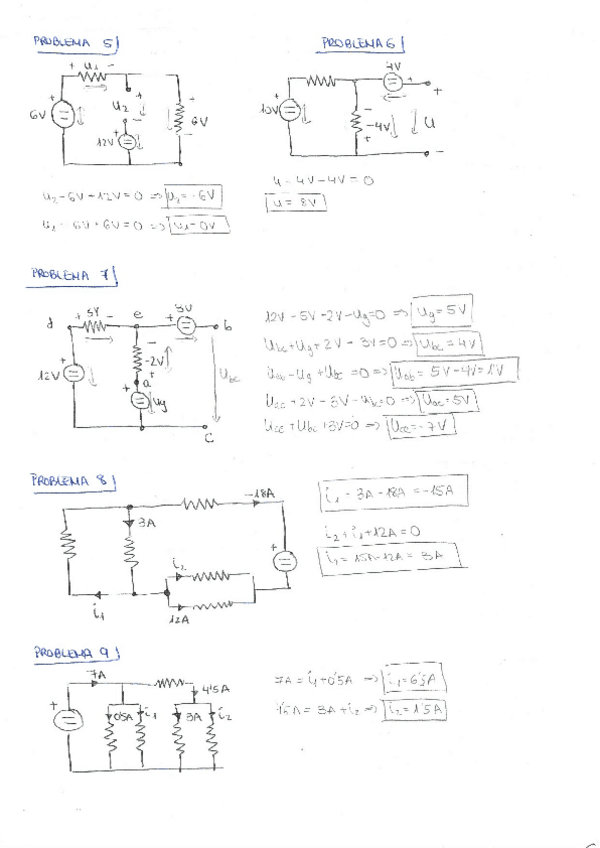 PROBLEMA 5
+ u1 -
6V
u2
12V
6V
u2-6V+12V=0 => u2=-6V
u1-6V+6V=0 => u1=0V
PROBLEMA 6
4V
10V
-4V
U
u-4V-4V=0
u=8V
PROBLEMA 7
d
5V
e
3V
b
12V
-2V
a
Ug
Ubc
c
12V-5V-2V-Ug=0 => Ug=5V
Ubc+Ug+2V-3V=0 => Ubc=4V
-Ug+Ubc=0 => Uab=5V-4V=1V
+2V-3V-Ubc=0 =>
+Ubc+3V=0 => =-7V
PROBLEMA 8
-18A
3A
i2
i1
12A
i1=3A-18A=-15A
i2+i1+12A=0
i2=15A-12A=3A
PROBLEMA 9
7A
4'5A
0'5A
i1
3A
i2
7A=i1+0'5A => i1=6'5A
4'5A=3A+i2 => i2=1'5A